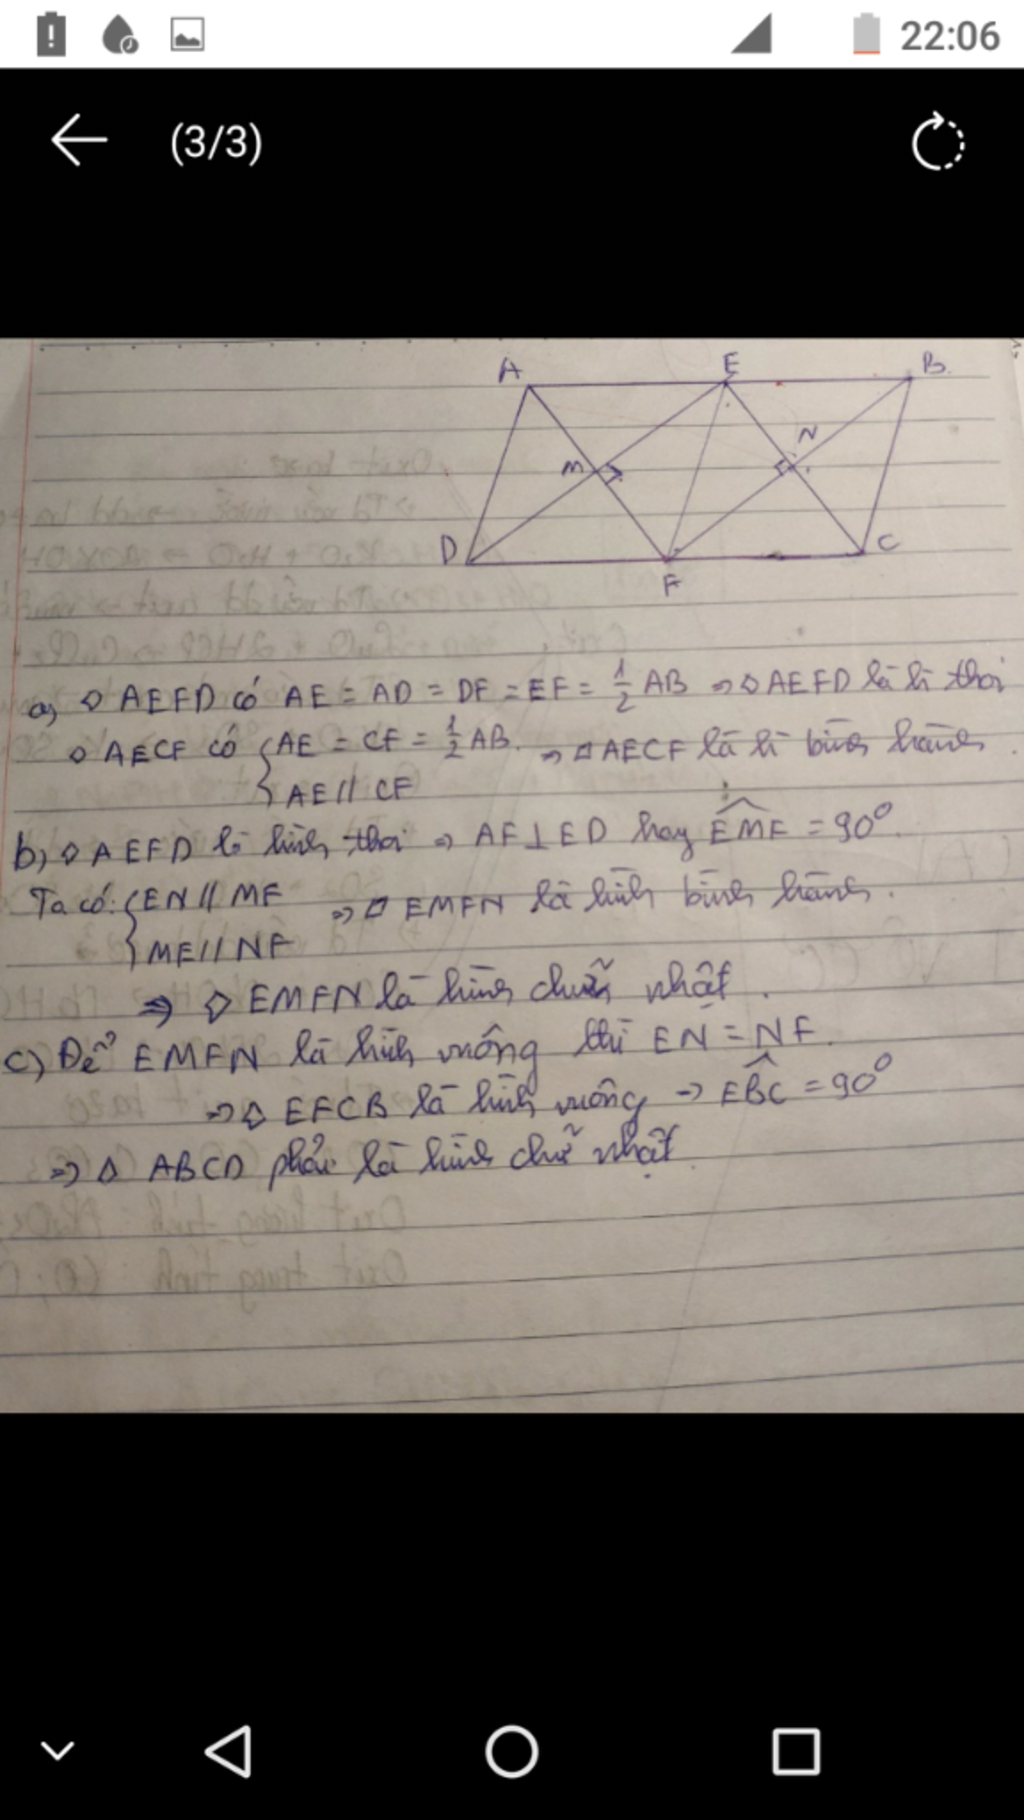 22:06
(3/3)
A E B
M N
D F C
a) ◊ AEFD có AE = AD = DF = EF = 1/2 AB ⇒ ◊ AEFD là h thoi
◊ AECF có { AE = CF = 1/2 AB. ⇒ ▱ AECF là h bình hành
AE // CF
b) ◊ AEFD là hình thoi ⇒ AF ⊥ ED hay EMF = 90°.
Ta có: { EN // MF ⇒ ▱ EMFN là hình bình hành.
ME // NF
⇒ ◊ EMFN là hình chữ nhật.
c) Để EMFN là hình vuông thì EN = NF.
⇒ ◊ EFCB là hình vuông → EBC = 90°
⇒ ◊ ABCD phải là hình chữ nhật.